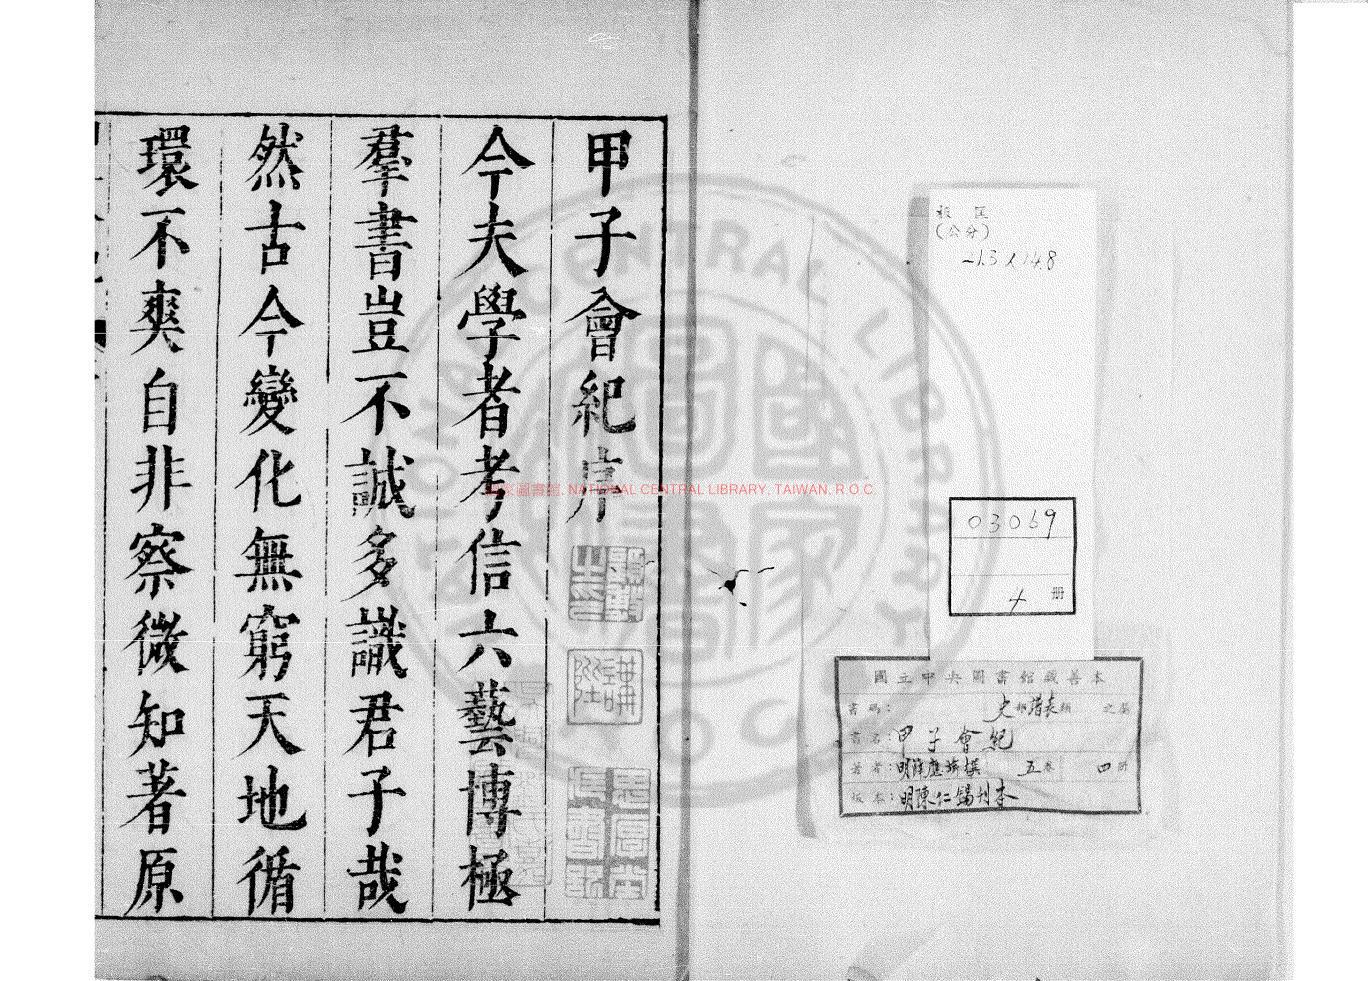 甲子會紀序
今夫學者考信六藝博極
羣書豈不誠多識君子哉
然古今變化無窮天地循
環不爽自非察微知著原
版匡
(公分)
03069
4 册
國立中央圖書館藏善本
書碼: 史部 譜表類 之屬
書名: 甲子會紀
著者: 明薛應旂撰 五卷 四册
版本: 明陳仁錫刊本
國家圖書館, NATIONAL CENTRAL LIBRARY, TAIWAN, R.O.C